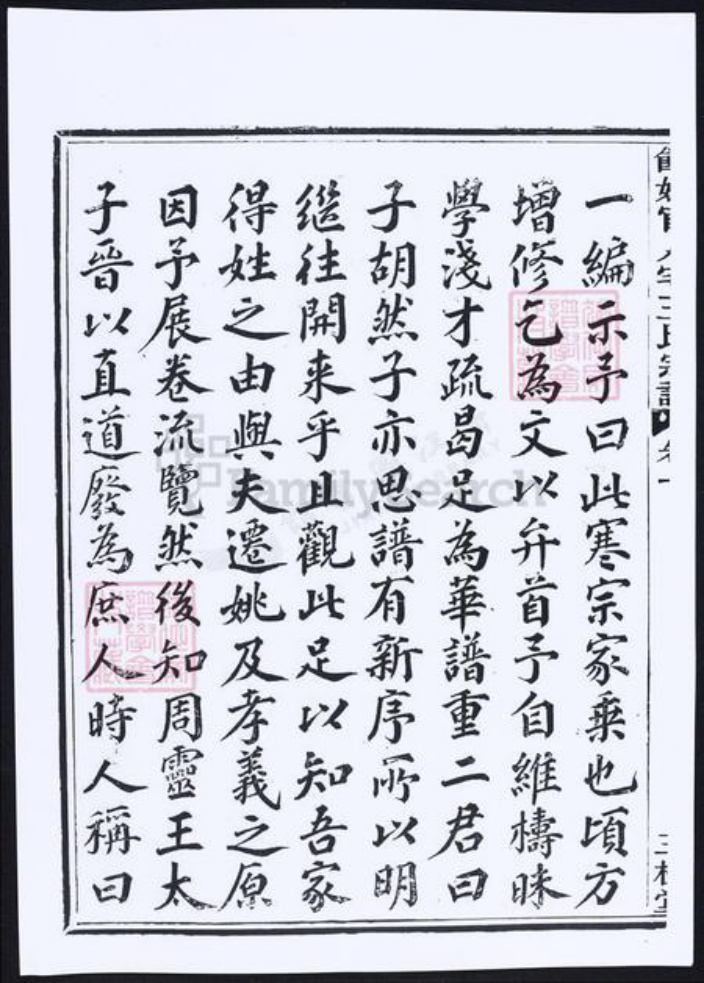 王氏宗譜 卷一
三槐堂
一編示予曰此寒宗家乗也頃方
增修乞為文以弁首予自維檮昧
學淺才疏曷足為華譜重二君曰
子胡然子亦思譜有新序所以明
繼往開来乎且觀此足以知吾家
得姓之由與夫遷姚及孝義之原
因予展卷流覽然後知周靈王太
子晉以直道廢為庶人時人稱曰
FamilySearch